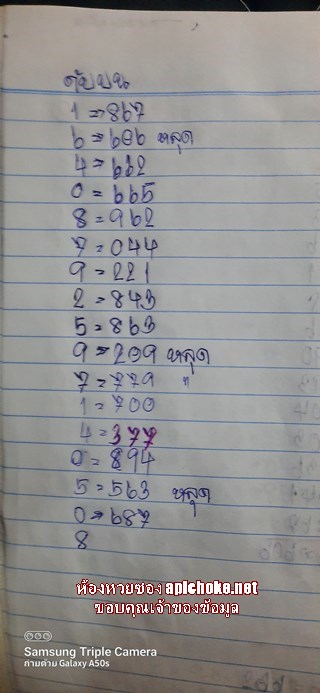 ดับบน
1 = 867
6 = 606 หลุด
4 = 662
0 = 665
8 = 962
7 = 044
9 = 221
2 = 843
5 = 863
9 = 209 หลุด
7 = 779 "
1 = 700
4 = 377
0 = 894
5 = 563 หลุด
0 = 687
8
ห้องหวยซอง apichoke.net
ขอบคุณเจ้าของข้อมูล
Samsung Triple Camera
ถ่ายด้วย Galaxy A50s